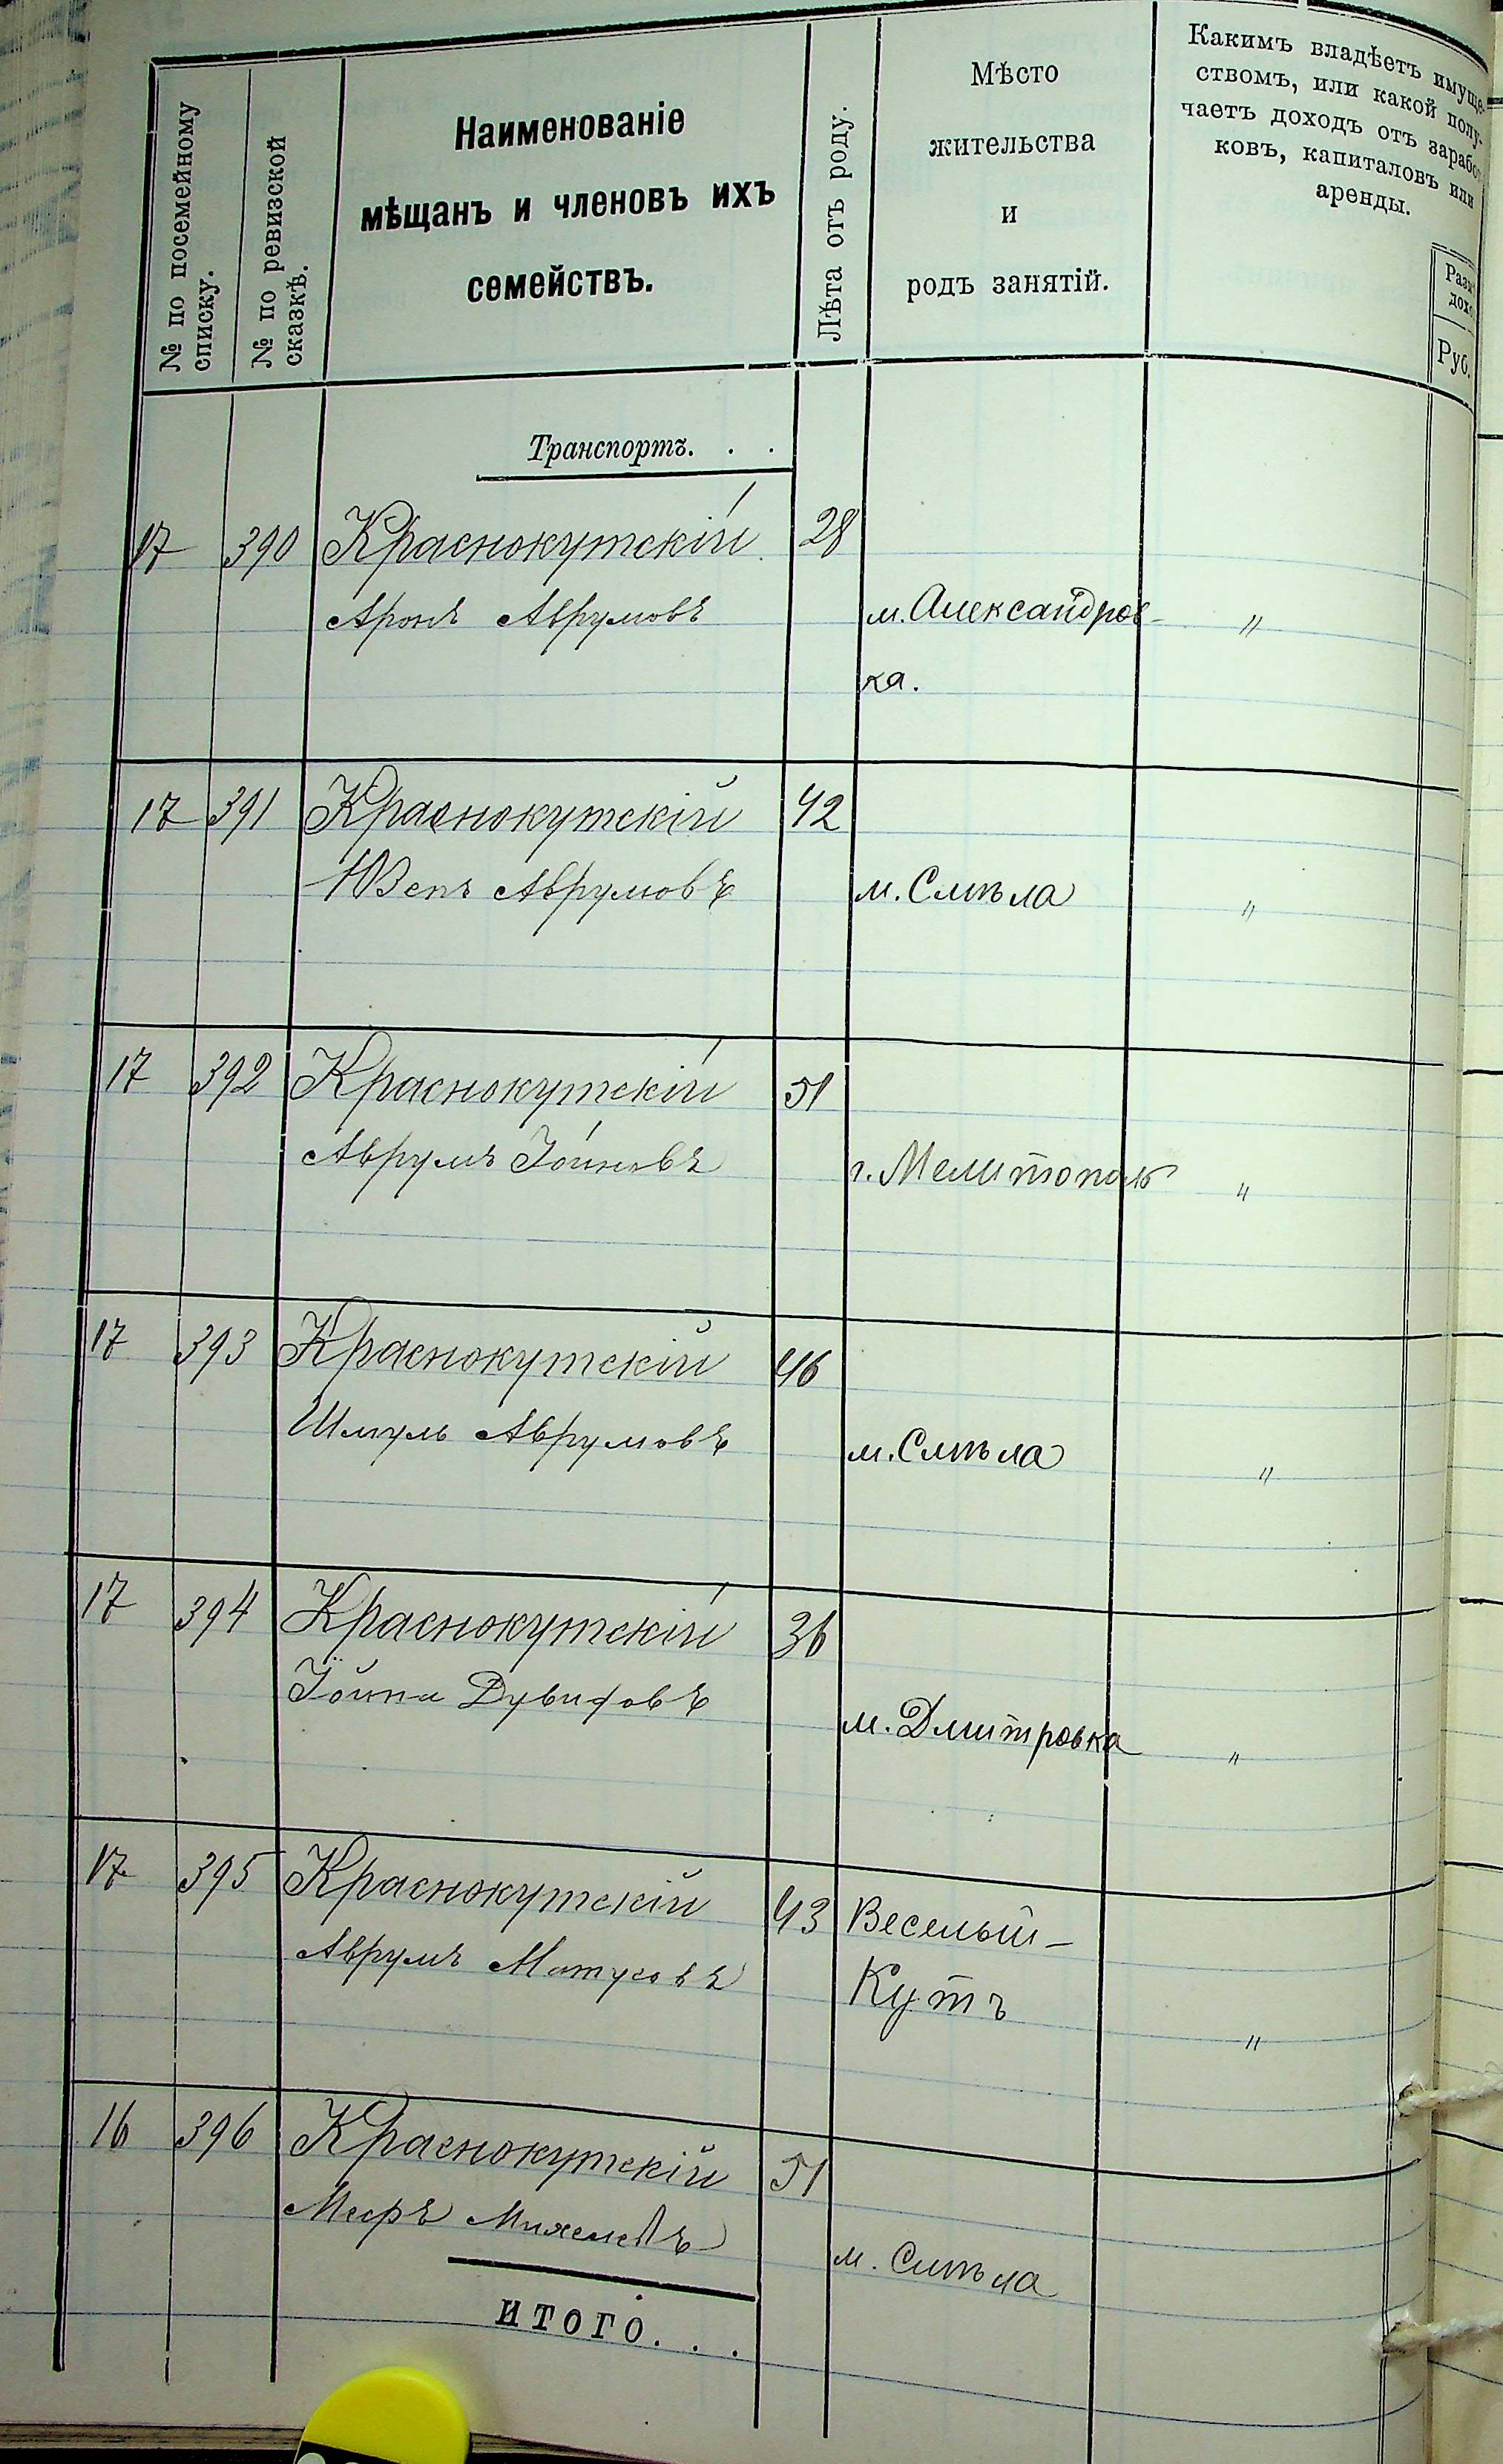 № по посемейному
списку.
№ по ревизской
сказкѣ.
Наименованіе
мѣщанъ и членовъ ихъ
семействъ.
Лѣта отъ роду.
Мѣсто
жительства
и
родъ занятій.
Какимъ владѣетъ имуще-
ствомъ, или какой полу-
чаетъ доходъ отъ зарабо
ковъ, капиталовъ или
аренды.
Руб.
Транспортъ. . .
17 390 Краснокутскій 28
Аронъ Аврумовъ м. Александров- "
ка.
17 391 Краснокутскій 42
Аврумовъ м. Смѣла "
17 392 Краснокутскій 51
Аврумъ Іойновъ г. Мелитополь "
17 393 Краснокутскій 46
Шмуль Аврумовъ м. Смѣла "
17 394 Краснокутскій 36
Іойна Дувидовъ м. Дмитровка "
17 395 Краснокутскій 43 Веселый-
Аврумъ Матусовъ Кутъ "
16 396 Краснокутскій 51
Мееръ м. Смѣла
ИТОГО. . .